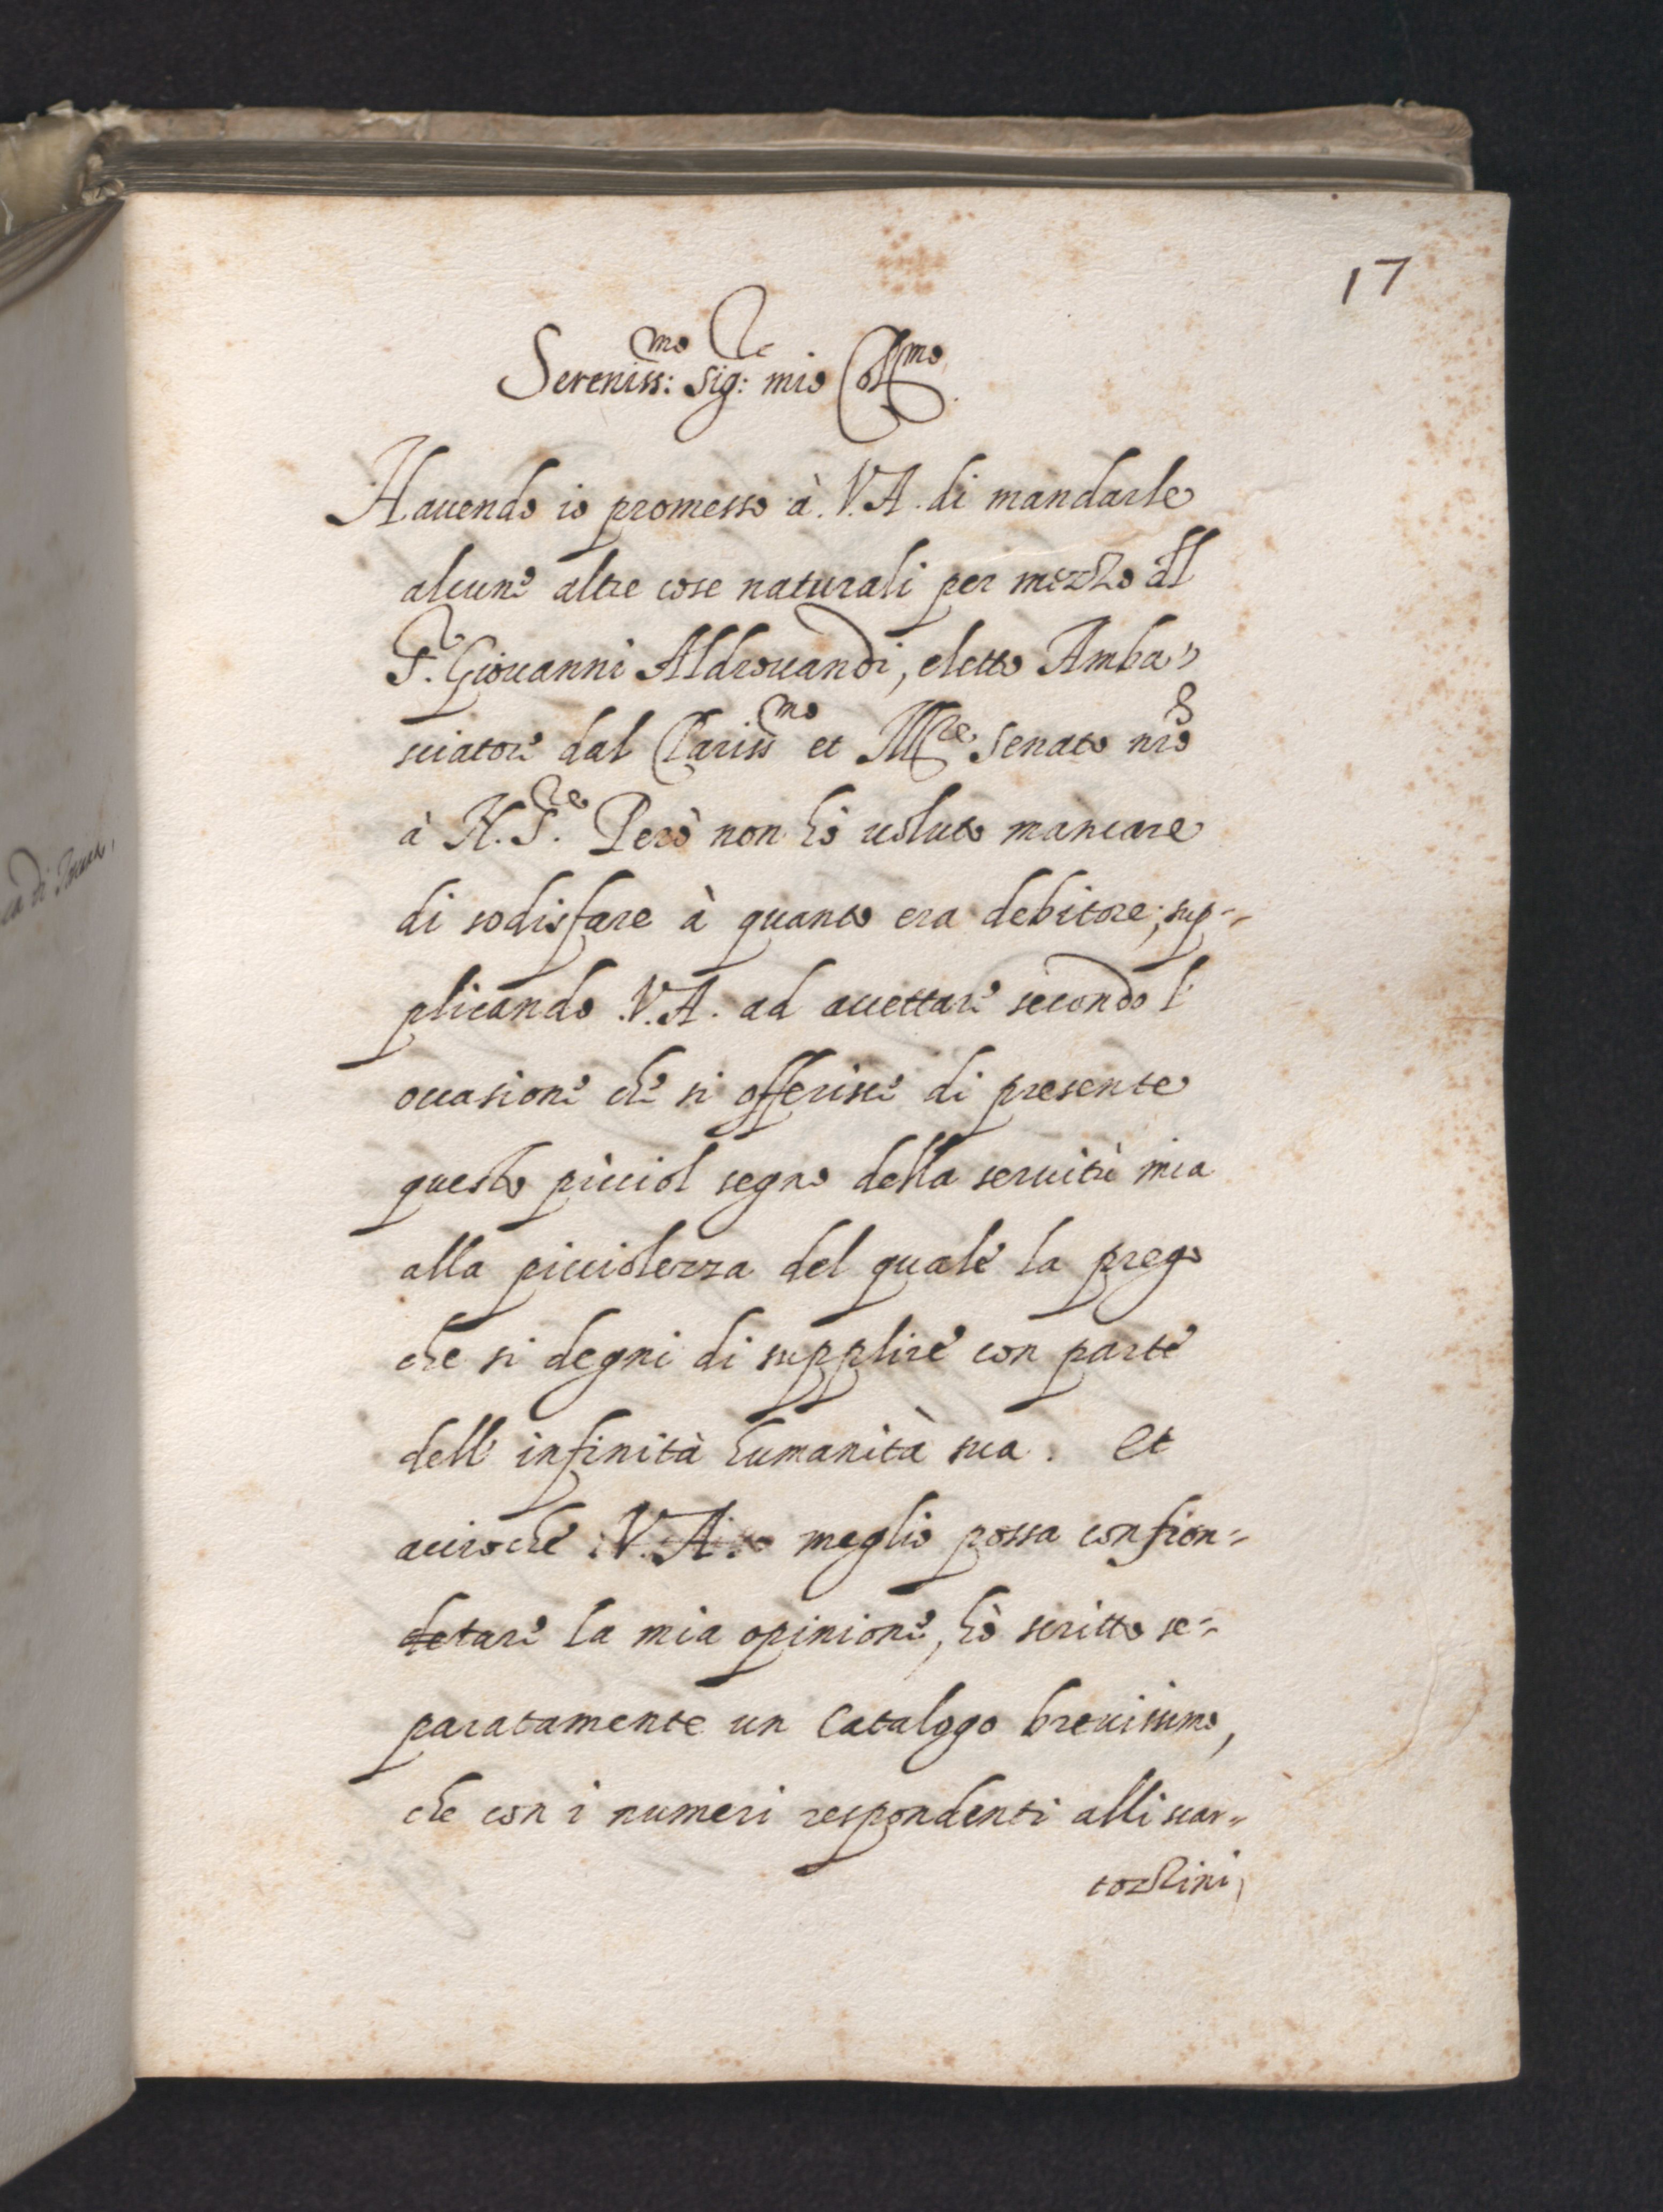 17
Sereniss:mo Sig:re mio Collmo.
Hauendo io promesso à V.A. di mandarle
alcune altre cose naturali per mezzo dll
S.r Giouanni Aldrouandi, eletto Amba=
sciatore dal Clarissmo et Illre Senato nro
à N. S.re Però non hò uoluto mancare
di sodisfare à quanto era debitore, sup=
plicando V.A. ad accettare secondo l'
occasione che si offerisce di presente
questo picciol segno della seruitù mia
alla picciolezza del quale la prego
che si degni di supplire con parte
dell' infinità humanità sua. Et
acciochè V.A. meglio possa confron=
detare la mia opinione, hò scritto se=
paratamente un Catalogo breuissimo,
che con i numeri respondenti alli scar=
tozzini,